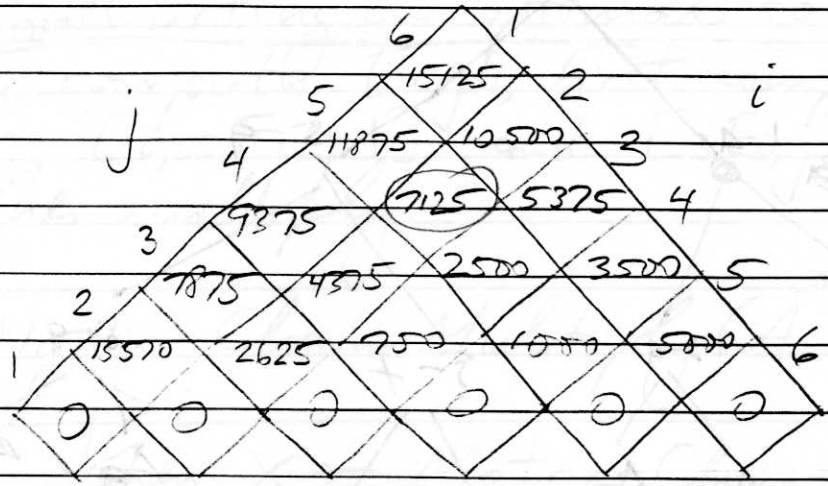 6 1
15125
5 2
j i
11875 10500
4 3
9375 7125 5375 4
3
7875 4375 2500 3500 5
2
15570 2625 750 1000 5000
1 6
0 0 0 0 0 0